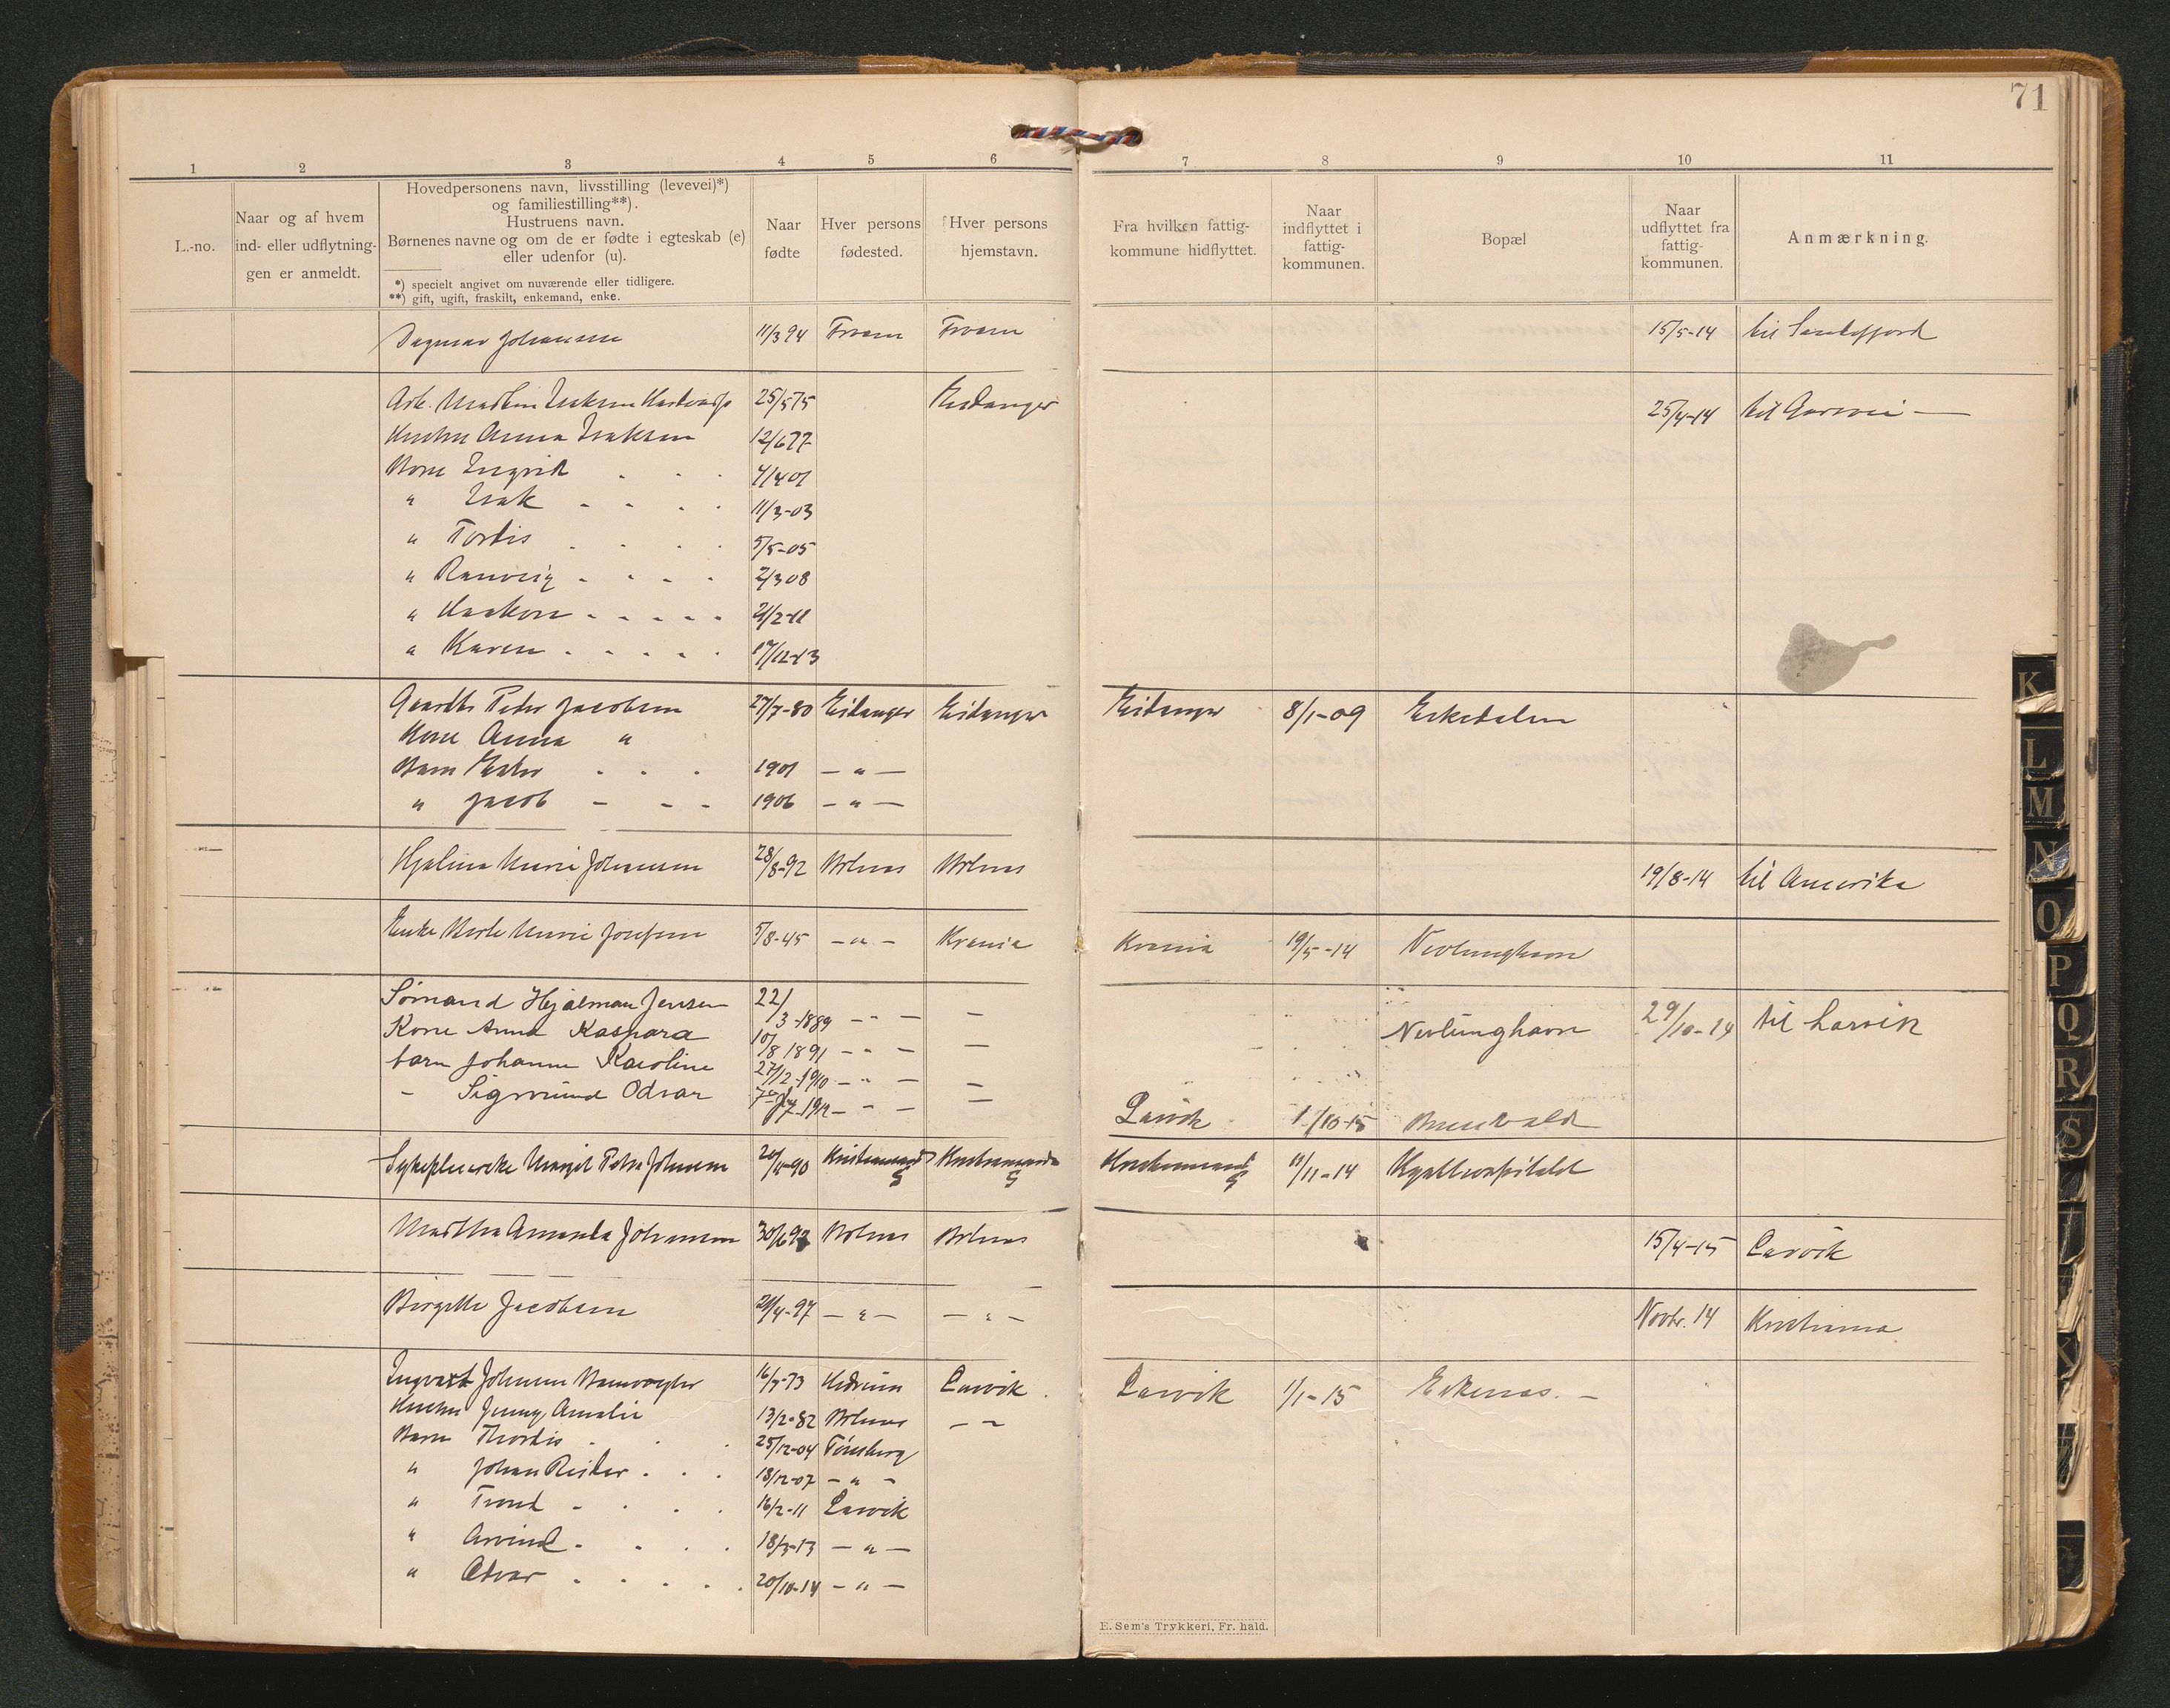 71
1 2 3 4 5 6 7 8 9 10 11
L.-no.
Naar og af hvem ind- eller udflytningen er anmeldt.
Hovedpersonens navn, livsstilling (levevei)*)
og familiestilling**).
Hustruens navn.
Børnenes navne og om de er fødte i egteskab (e)
eller udenfor (u).
*) specielt angivet om nuværende eller tidligere.
**) gift, ugift, fraskilt, enkemand, enke.
Naar fødte
Hver persons fødested.
Hver persons hjemstavn.
Fra hvilken fattigkommune hidflyttet.
Naar indflyttet i fattigkommunen.
Bopæl
Naar udflyttet fra fattigkommunen.
Anmærkning.
Dagmar Johansen 11/3 94 15/5-14 til Sandefjord
Arb. Martin Isaksen 25/5 75 Eidanger 25/4-14 til
Hustru Anna Isaksen 12/6 77
Barn Ingrid 01
" Isak 11/3-03
" Tordis 5/5-05
" Ranveig 2/3 08
" Haakon
" Karen 17/12-13
Gaardbr Peder Jacobsen 27/7-80 Eidanger Eidanger Eidanger 8/1-09
Kone Anna "
Barn Ester 1901 — " —
" Jacob 1906 — " —
Hjalma Marie Johansen 28/8-92 Brlnes Brlnes 19/8-14 til Amerika
Enke Marie Josefsen 5/8-45 — " — Krania Krania 19/5-14 Nevlunghavn
Sømand Hjalmar Jensen 22/3-1889 — " — — Nevlunghavn 29/10-14 til Larvik
Kone Anna Kaspara 10/8 1891 — " — —
barn Johanne Karoline 27/12-1910 — " — —
— Sigmund Odvar — " — —
Larvik 1/10-15
Sykepleierske Margit Petra Johnsen Kristianssand S Kristianssand S Kristianssand S 11/11-14 Kysthospitalet
Martha Amanda Johannsen 30/6 92 Brlnes Brlnes 15/4-15 Larvik
Birgitte Jacobsen 21/4-97 — " — — " — Novbr. 14 Kristiania
Ingvart Johnsen Banevogter 16/7-73 Hedrum Larvik Larvik 1/1-15 Ekenes. —
Hustru Jenny Amalie 13/2-82 Brlnes — " —
Barn Thordis 25/12-04 Tønsberg
" Johan Reidar 18/12-07 — " —
" Trond 16/2-11 Larvik
" Arvind 18/3-13 — " —
" Odvar 20/10-14 — " —
E. Sem's Trykkeri, Fr. hald.
K
L
M
N
O
P
Q
R
S